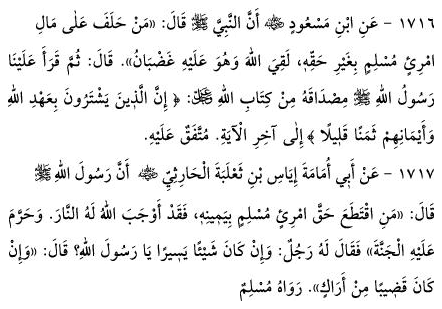 ١٧١٦ - عَنِ ابْنِ مَسْعُودٍ ﷺ أَنَّ النَّبِيَّ ﷺ قَالَ: «مَنْ حَلَفَ عَلَى مَالِ
امْرِئٍ مُسْلِمٍ بِغَيْرِ حَقِّهِ، لَقِيَ اللهَ وَهُوَ عَلَيْهِ غَضْبَانُ». قَالَ: ثُمَّ قَرَأَ عَلَيْنَا
رَسُولُ اللهِ ﷺ مِصْدَاقَهُ مِنْ كِتَابِ اللهِ ﷻ: ﴿ إِنَّ الَّذِينَ يَشْتَرُونَ بِعَهْدِ اللهِ
وَأَيْمَانِهِمْ ثَمَنًا قَلِيلًا ﴾ إِلَى آخِرِ الْآيَةِ. مُتَّفَقٌ عَلَيْهِ.
١٧١٧ - عَنْ أَبِي أُمَامَةَ إِيَاسِ بْنِ ثَعْلَبَةَ الْحَارِثِيِّ أَنَّ رَسُولَ اللهِ ﷺ
قَالَ: «مَنِ اقْتَطَعَ حَقَّ امْرِئٍ مُسْلِمٍ بِيَمِينِهِ، فَقَدْ أَوْجَبَ اللهُ لَهُ النَّارَ. وَحَرَّمَ
عَلَيْهِ الْجَنَّةَ» فَقَالَ لَهُ رَجُلٌ: وَإِنْ كَانَ شَيْئًا يَسِيرًا يَا رَسُولَ اللهِ؟ قَالَ: «وَإِنْ
كَانَ قَضِيبًا مِنْ أَرَاكٍ». رَوَاهُ مُسْلِمٌ